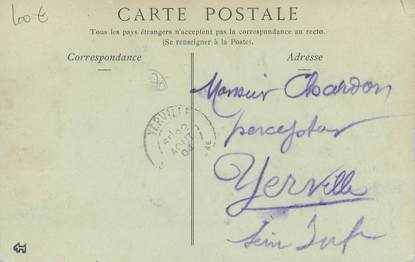 100 €
CARTE POSTALE
Tous les pays étrangers n'acceptent pas la correspondance au recto.
(Se renseigner à la Poste).
Correspondance
Adresse
YERVILLE
AOUT
04
Monsieur Chardon
percepteur
Yerville
Seine Infre